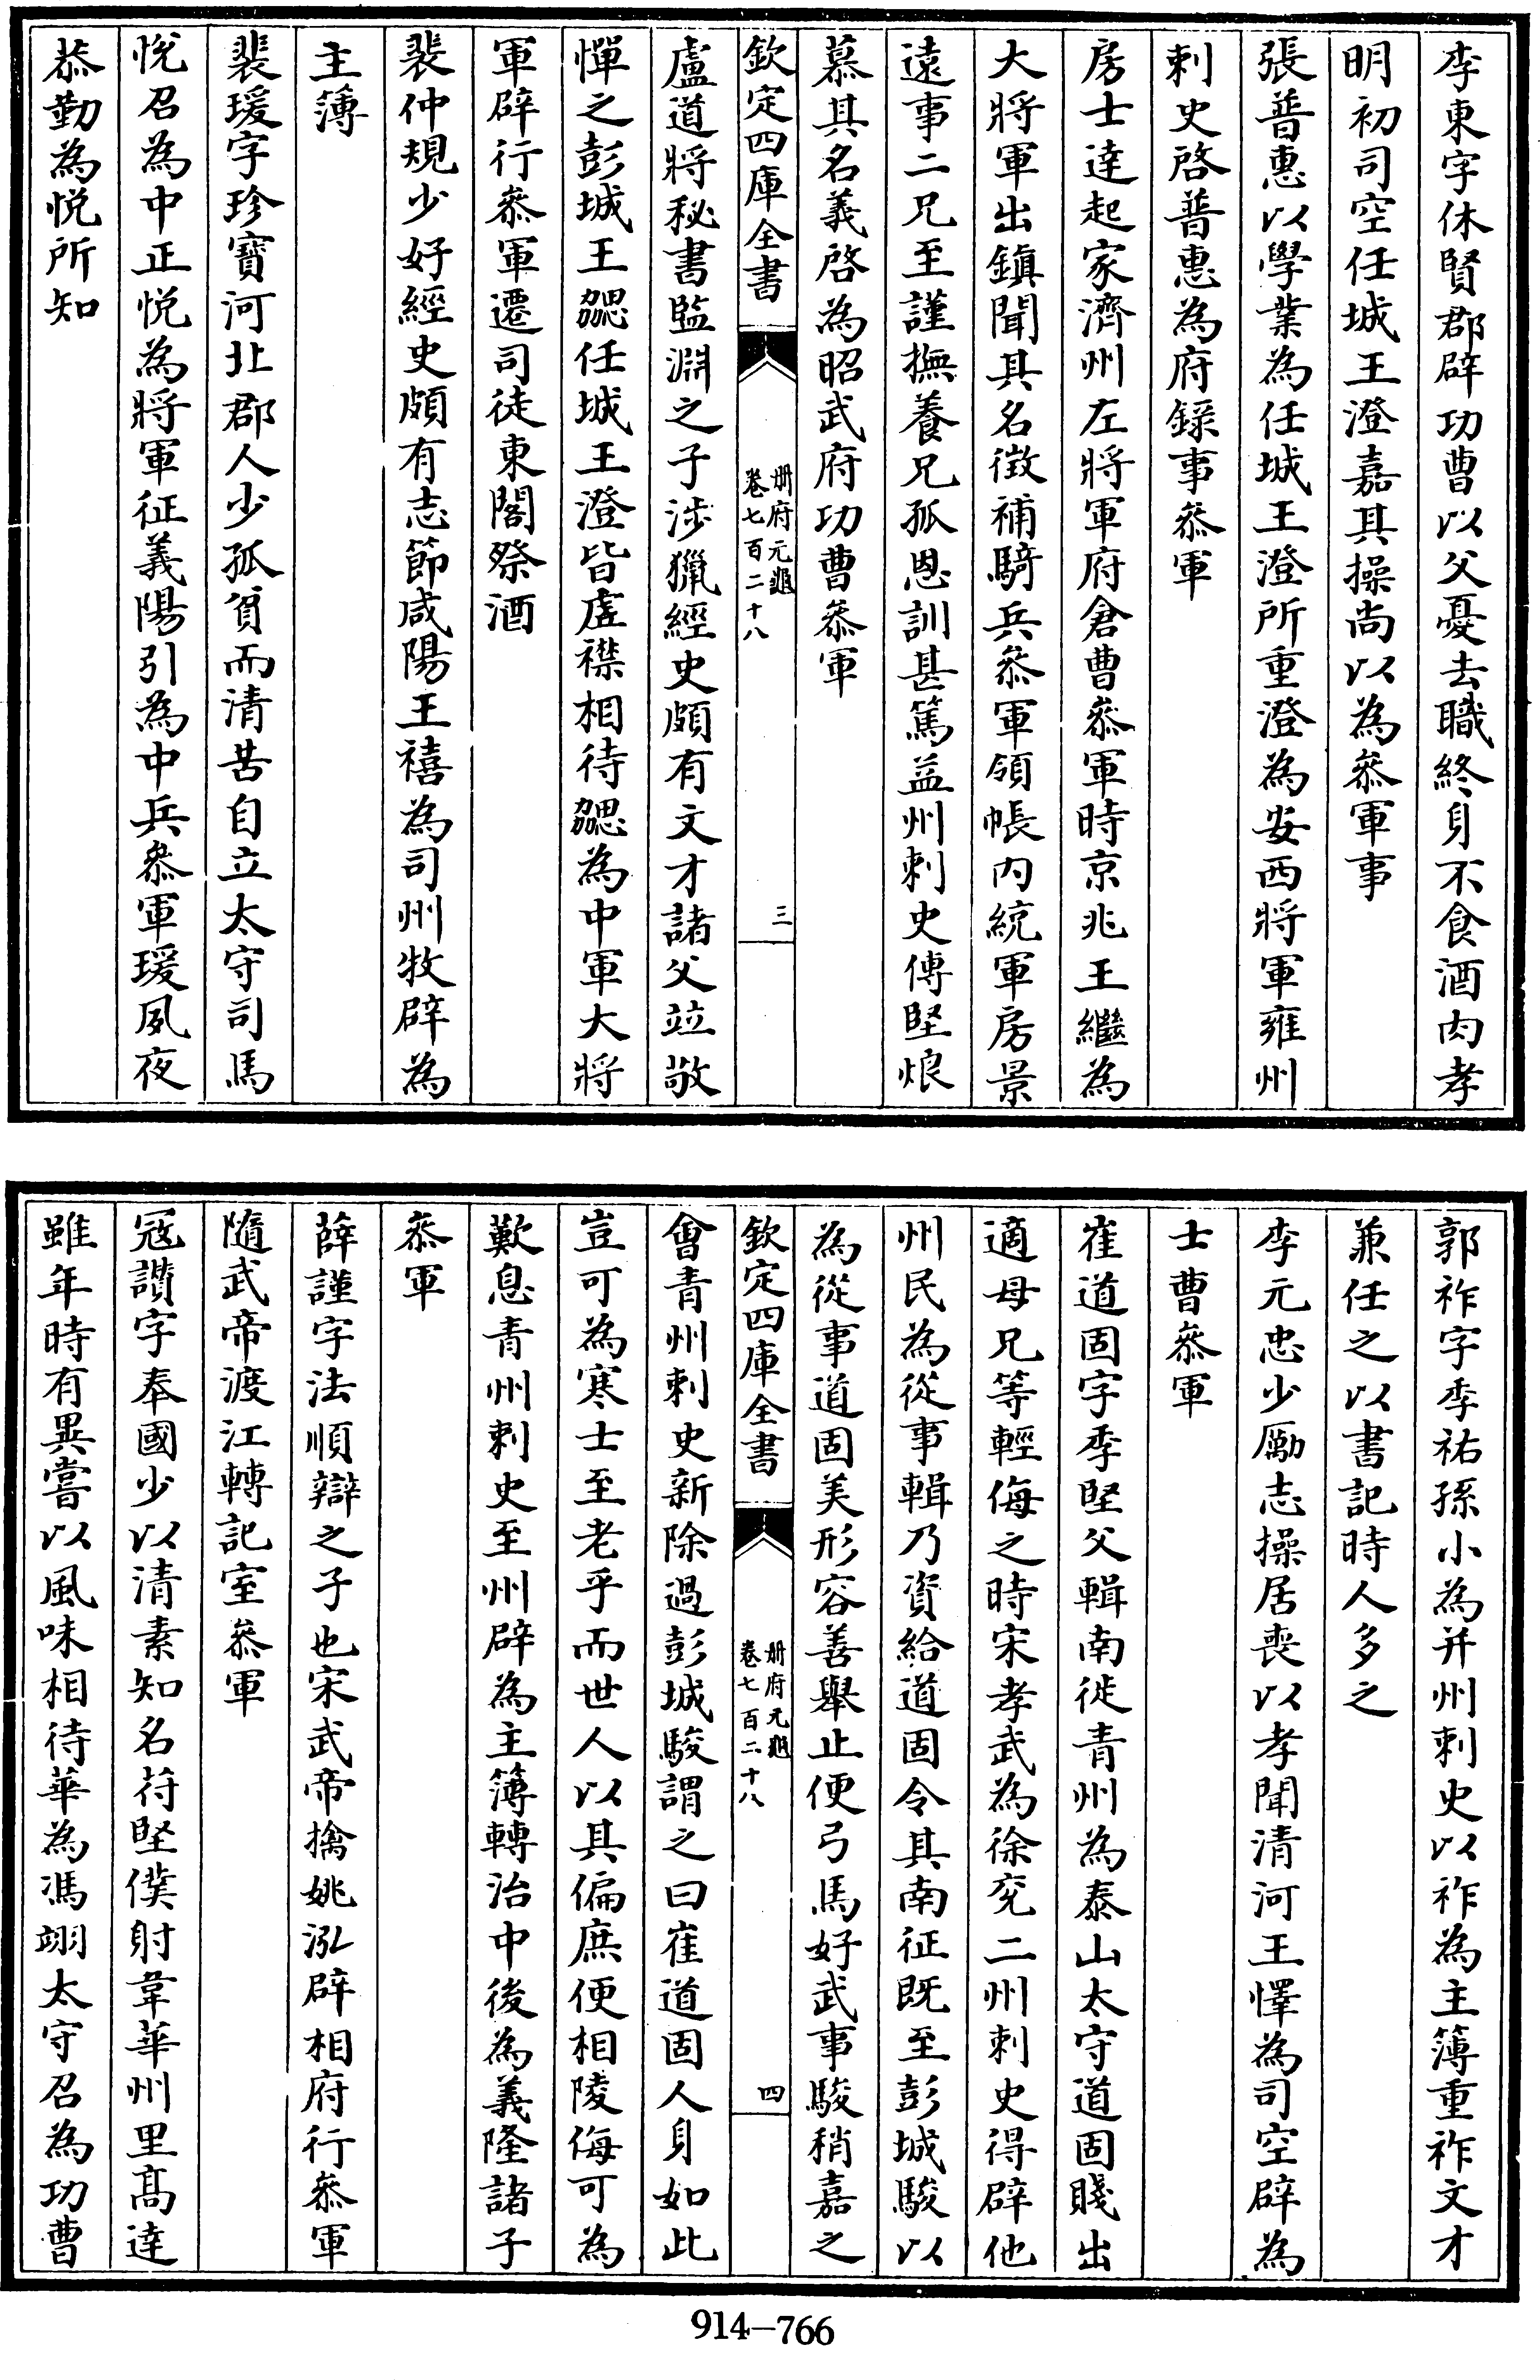 李東字休賢郡辟功曹以父憂去職終身不食酒肉孝
明初司空任城王澄嘉其操尚以為叅軍事
張普惠以學業為任城王澄所重澄為安西將軍雍州
刺史啓普惠為府錄事叅軍
房士達起家濟州左將軍府倉曹叅軍時京兆王繼為
大將軍出鎮聞其名徵補騎兵叅軍領帳內統軍房景
遠事二兄至謹撫養兄孤恩訓甚篤益州刺史傅堅烺
慕其名義啓為昭武府功曹叅軍
欽定四庫全書
冊府元龜
卷七百二十八
三
盧道將秘書監淵之子涉獵經史頗有文才諸父竝敬
憚之彭城王勰任城王澄皆虛襟相待勰為中軍大將
軍辟行叅軍遷司徒東閣祭酒
裴仲規少好經史頗有志節咸陽王禧為司州牧辟為
主簿
裴瑗字珍寶河北郡人少孤貧而清苦自立太守司馬
悅召為中正悅為將軍征義陽引為中兵叅軍瑗夙夜
恭勤為悅所知
郭祚字季祐孫小為并州刺史以祚為主簿重祚文才
兼任之以書記時人多之
李元忠少勵志操居喪以孝聞清河王懌為司空辟為
士曹叅軍
崔道固字季堅父輯南徙青州為泰山太守道固賤出
適母兄等輕侮之時宋孝武為徐兗二州刺史得辟他
州民為從事輯乃資給道固令其南征既至彭城駿以
為從事道固美形容善舉止便弓馬好武事駿稍嘉之
欽定四庫全書
冊府元龜
卷七百二十八
四
會青州刺史新除過彭城駿謂之曰崔道固人身如此
豈可為寒士至老乎而世人以其偏庶便相陵侮可為
歎息青州刺史至州辟為主簿轉治中後為義隆諸子
叅軍
薛謹字法順辯之子也宋武帝擒姚泓辟相府行叅軍
隨武帝渡江轉記室叅軍
冦讃字奉國少以清素知名苻堅僕射韋華州里髙達
雖年時有異嘗以風味相待華為馮翊太守召為功曹
914-766